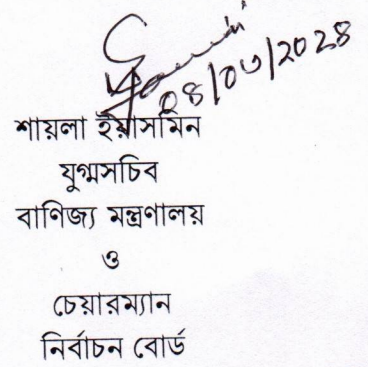 ০৪/০৩/২০২৪
শায়লা ইয়াসমিন
যুগ্মসচিব
বাণিজ্য মন্ত্রণালয়
ও
চেয়ারম্যান
নির্বাচন বোর্ড